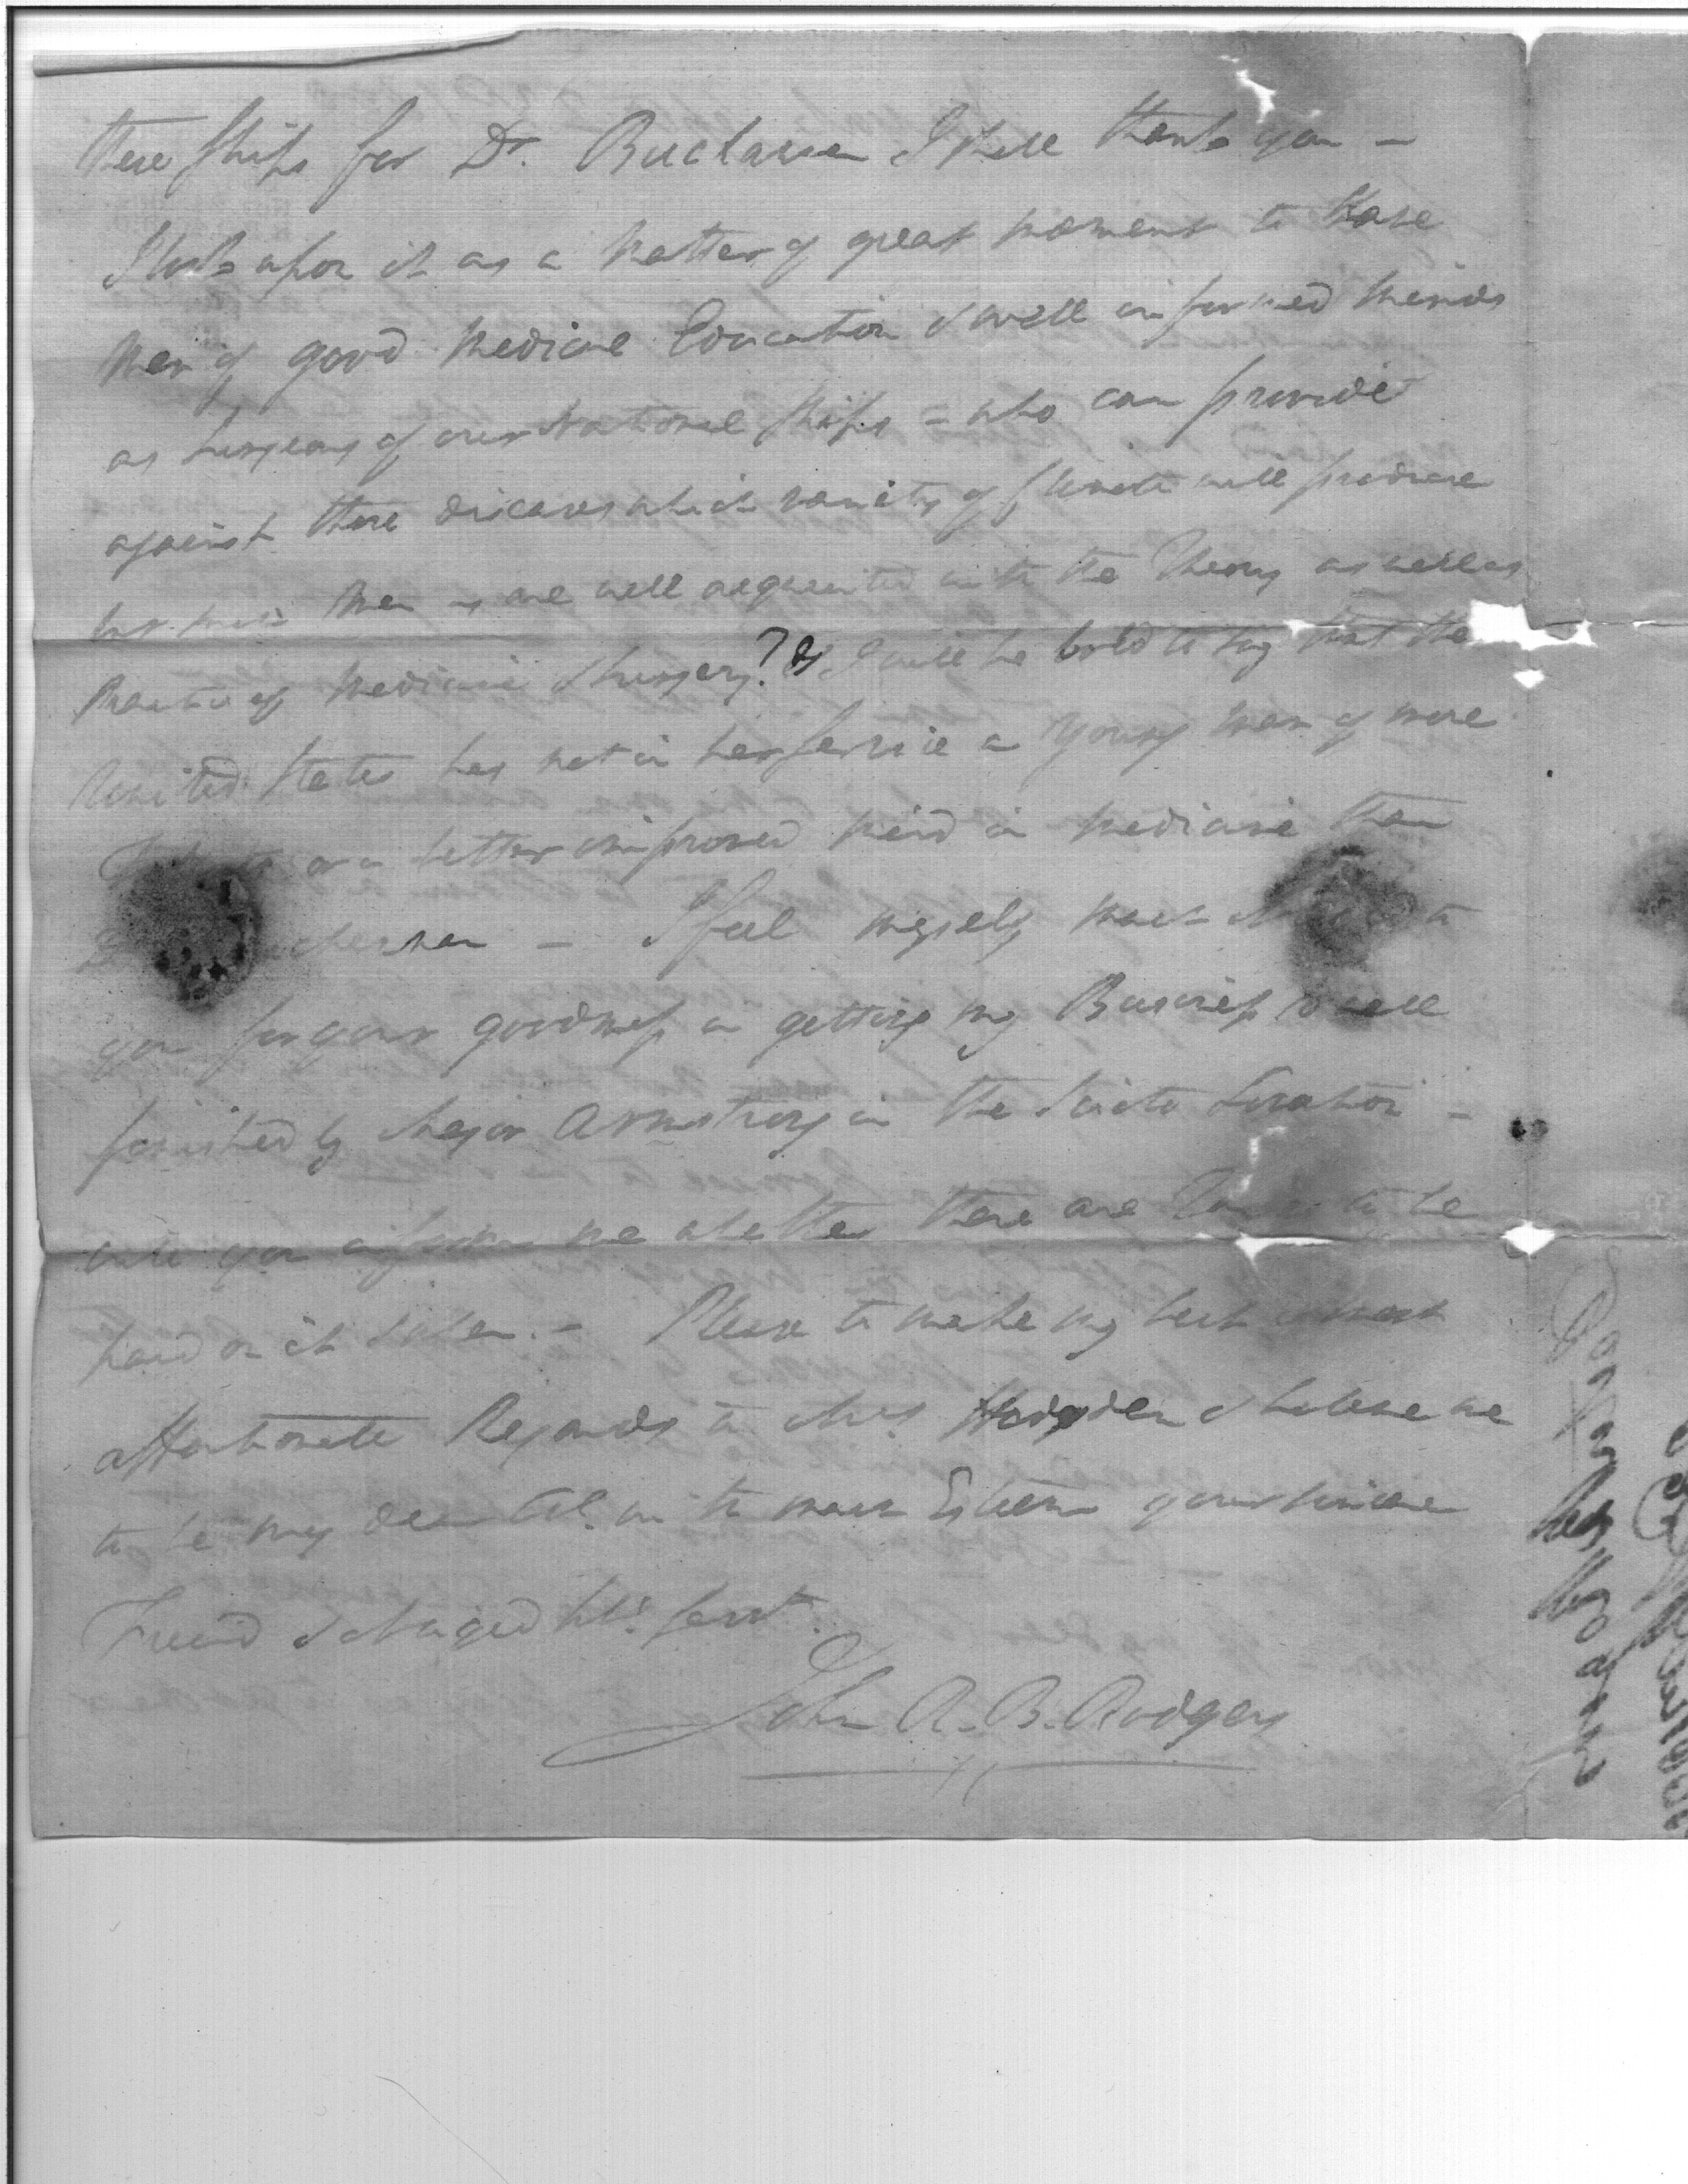 these ships for Dr. Buchanan I shall thank you –
I look upon it as a matter of great moment to have
Men of good Medical Education & well informed minds
as Surgeons of our National Ships – who can provide
against those diseases which variety of Climate will produce
but such Men as are well acquainted with the Theory as well as
Practice of Medicine & Surgery? & I will be bold to say that the
United States has not in her Service a Young Man of more
or a better improved mind in Medicine than
– I feel myself much to
you for your goodness in getting my Business so well
finished by Major Armstrong in the Scioto Location –
will you inform me whether there are to be
paid on it &
 – Please to make my best & most
affectionate Regards to Mrs. & believe me
to be my dear with much Esteem your sincere
Friend & obliged Hble. Servt.
John R. B. Rodgers
Doctor Rodgers